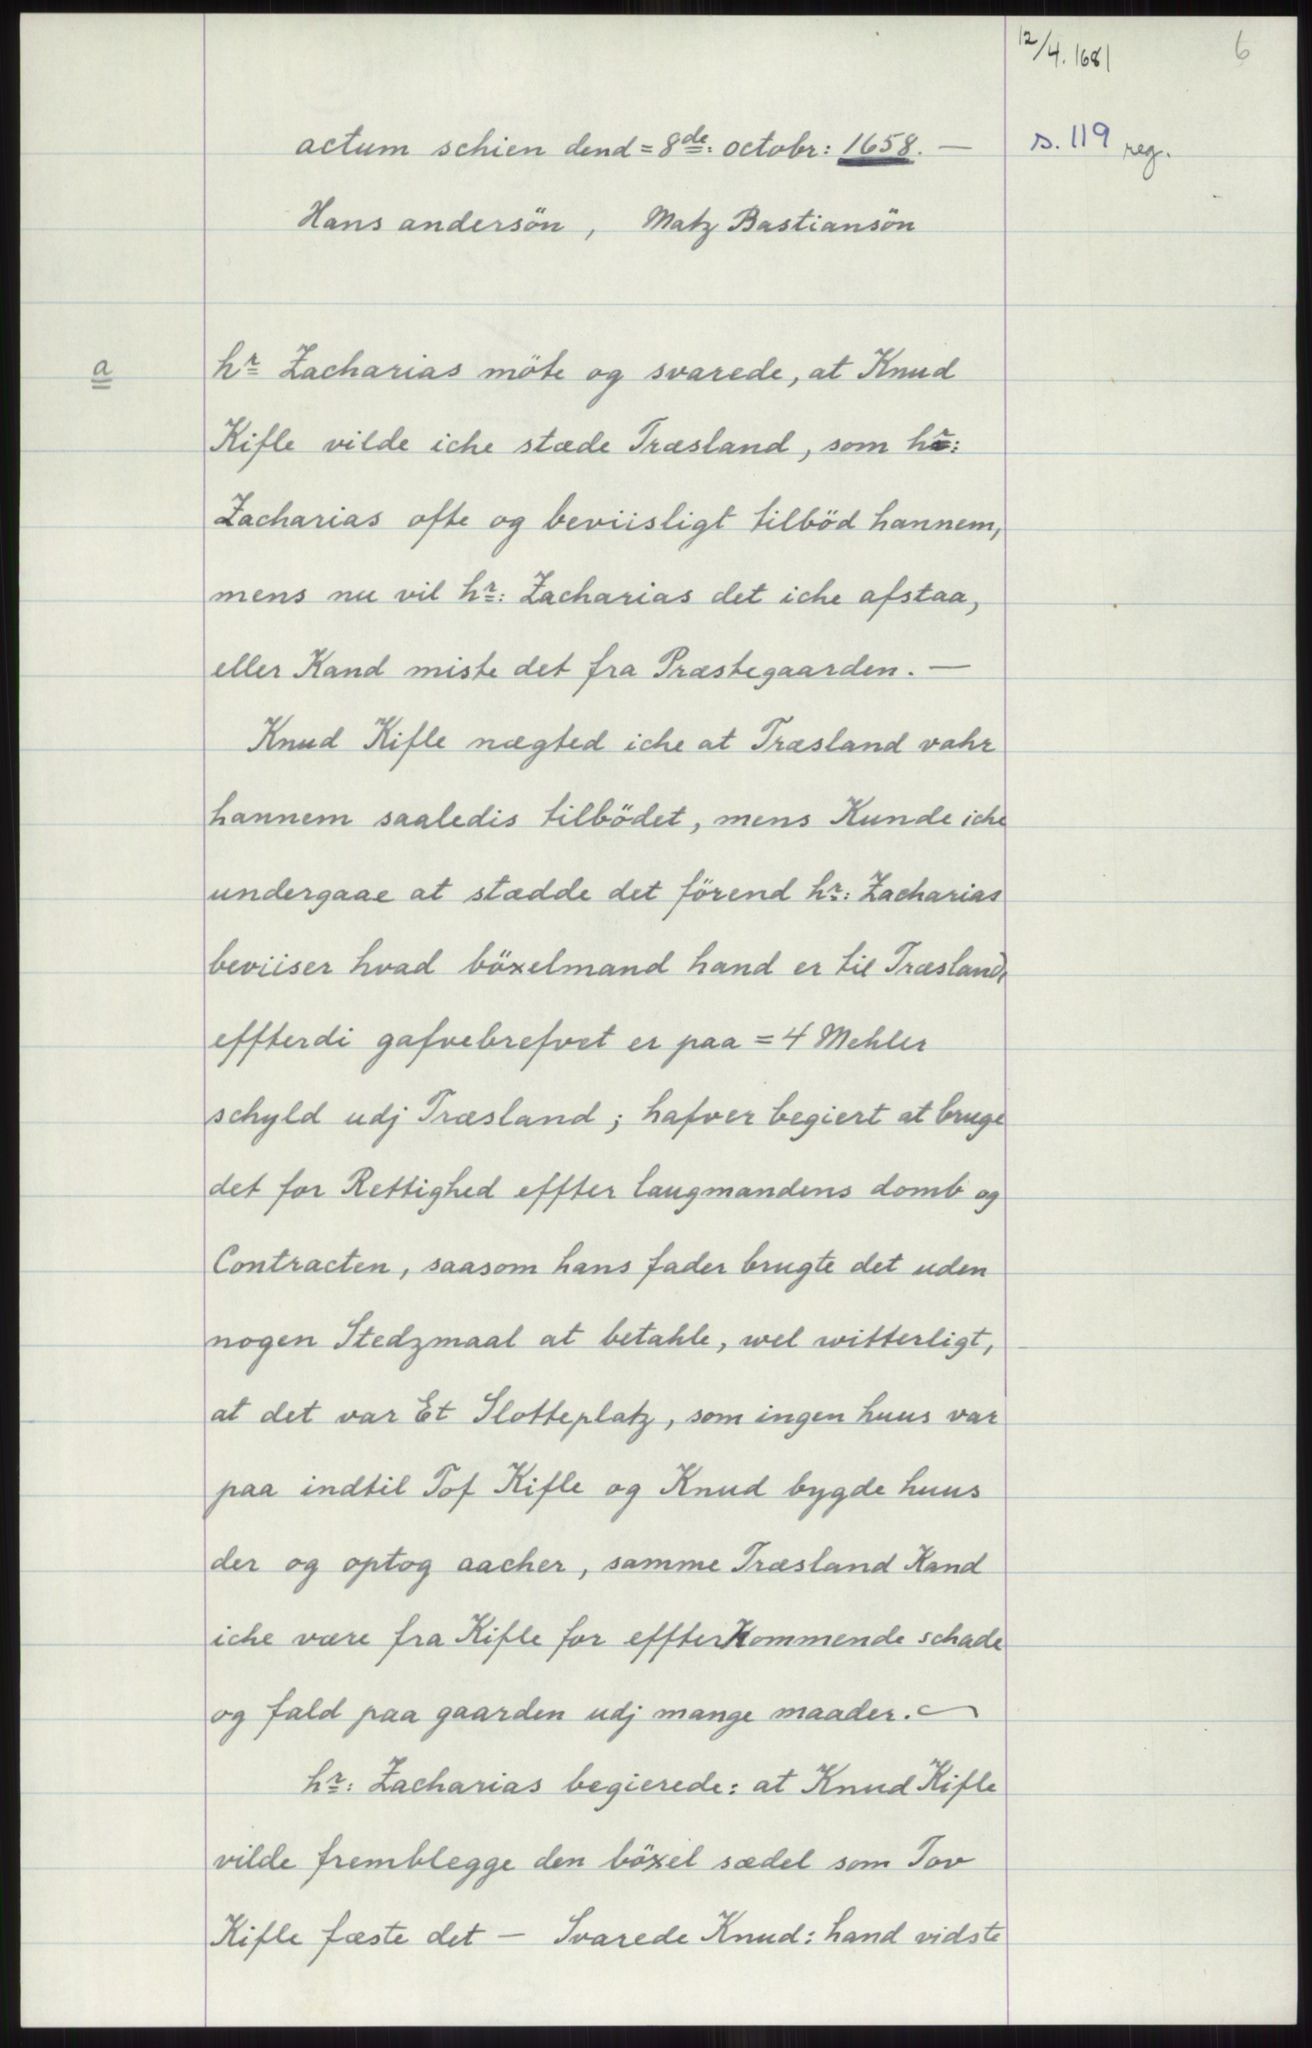 12/4. 1681
6
actum schien dend = 8de: octobr: 1658. —
s. 119 reg.
Hans andersön, Matz Bastiansön
a
hr Zacharias möte og svarede, at Knud
Kifle vilde iche stæde Træsland, som hr:
Zacharias ofte og beviisligt tilböd hannem,
mens nu vil hr: Zacharias det iche afstaa,
eller Kand miste det fra Præstegaarden. —
Knud Kifle nægted iche at Træsland vahr
hannem saaledis tilbödet, mens Kunde iche
undergaae at stædde det förend hr: Zacharias
beviiser hvad böxelmand hand er til Træsland,
effterdi gafvebrefvet er paa = 4 Mehler
schyld udj Træsland; hafver begiert at bruge
det for Rettighed effter laugmandens domb og
Contracten, saasom hans fader brugte det uden
nogen Stedzmaal at betahle, wel witterligt,
at det var Et Slotteplatz, som ingen huus var
paa indtil Tof Kifle og Knud bygde huus
der og optog aacher, samme Træsland Kand
iche være fra Kifle for effterKommende schade
og fald paa gaarden udj mange maader. —
hr: Zacharias begierede: at Knud Kifle
vilde fremblegge den böxel sædel som Tov
Kifle fæste det — Svarede Knud: hand vidste